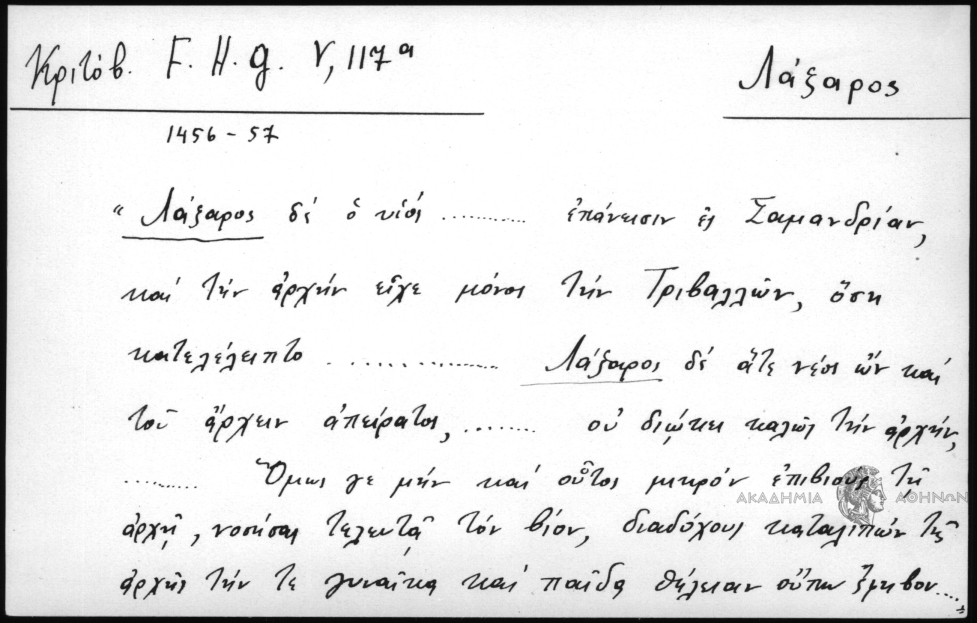 Κριτόβ. F. H. g. V, 117ᵃ
Λάξαρος
1456 - 57
“ Λάξαρος δέ ὁ υἱός ........... ἐπάνεισιν ἐς Σαμανδρίαν,
καί τήν ἀρχήν εἶχε μόνος τήν Τριβαλλῶν, ὅση
κατελέλειπτο ............... Λάξαρος δέ ἅτε νέος ὤν καί
τοῦ ἄρχειν ἀπείρατος, ......... οὐ διῴκει καλῶς τήν ἀρχήν,
.......... Ὅμως γε μήν καί οὗτος μικρόν ἐπιβιούς τῇ
ΑΚΑΔΗΜΙΑ ΑΘΗΝΩΝ
ἀρχῇ, νοσήσας τελευτᾷ τόν βίον, διαδόχους καταλιπών τῆς
ἀρχῆς τήν τε γυναῖκα καί παῖδα θήλειαν οὔπω ἔφηβον....